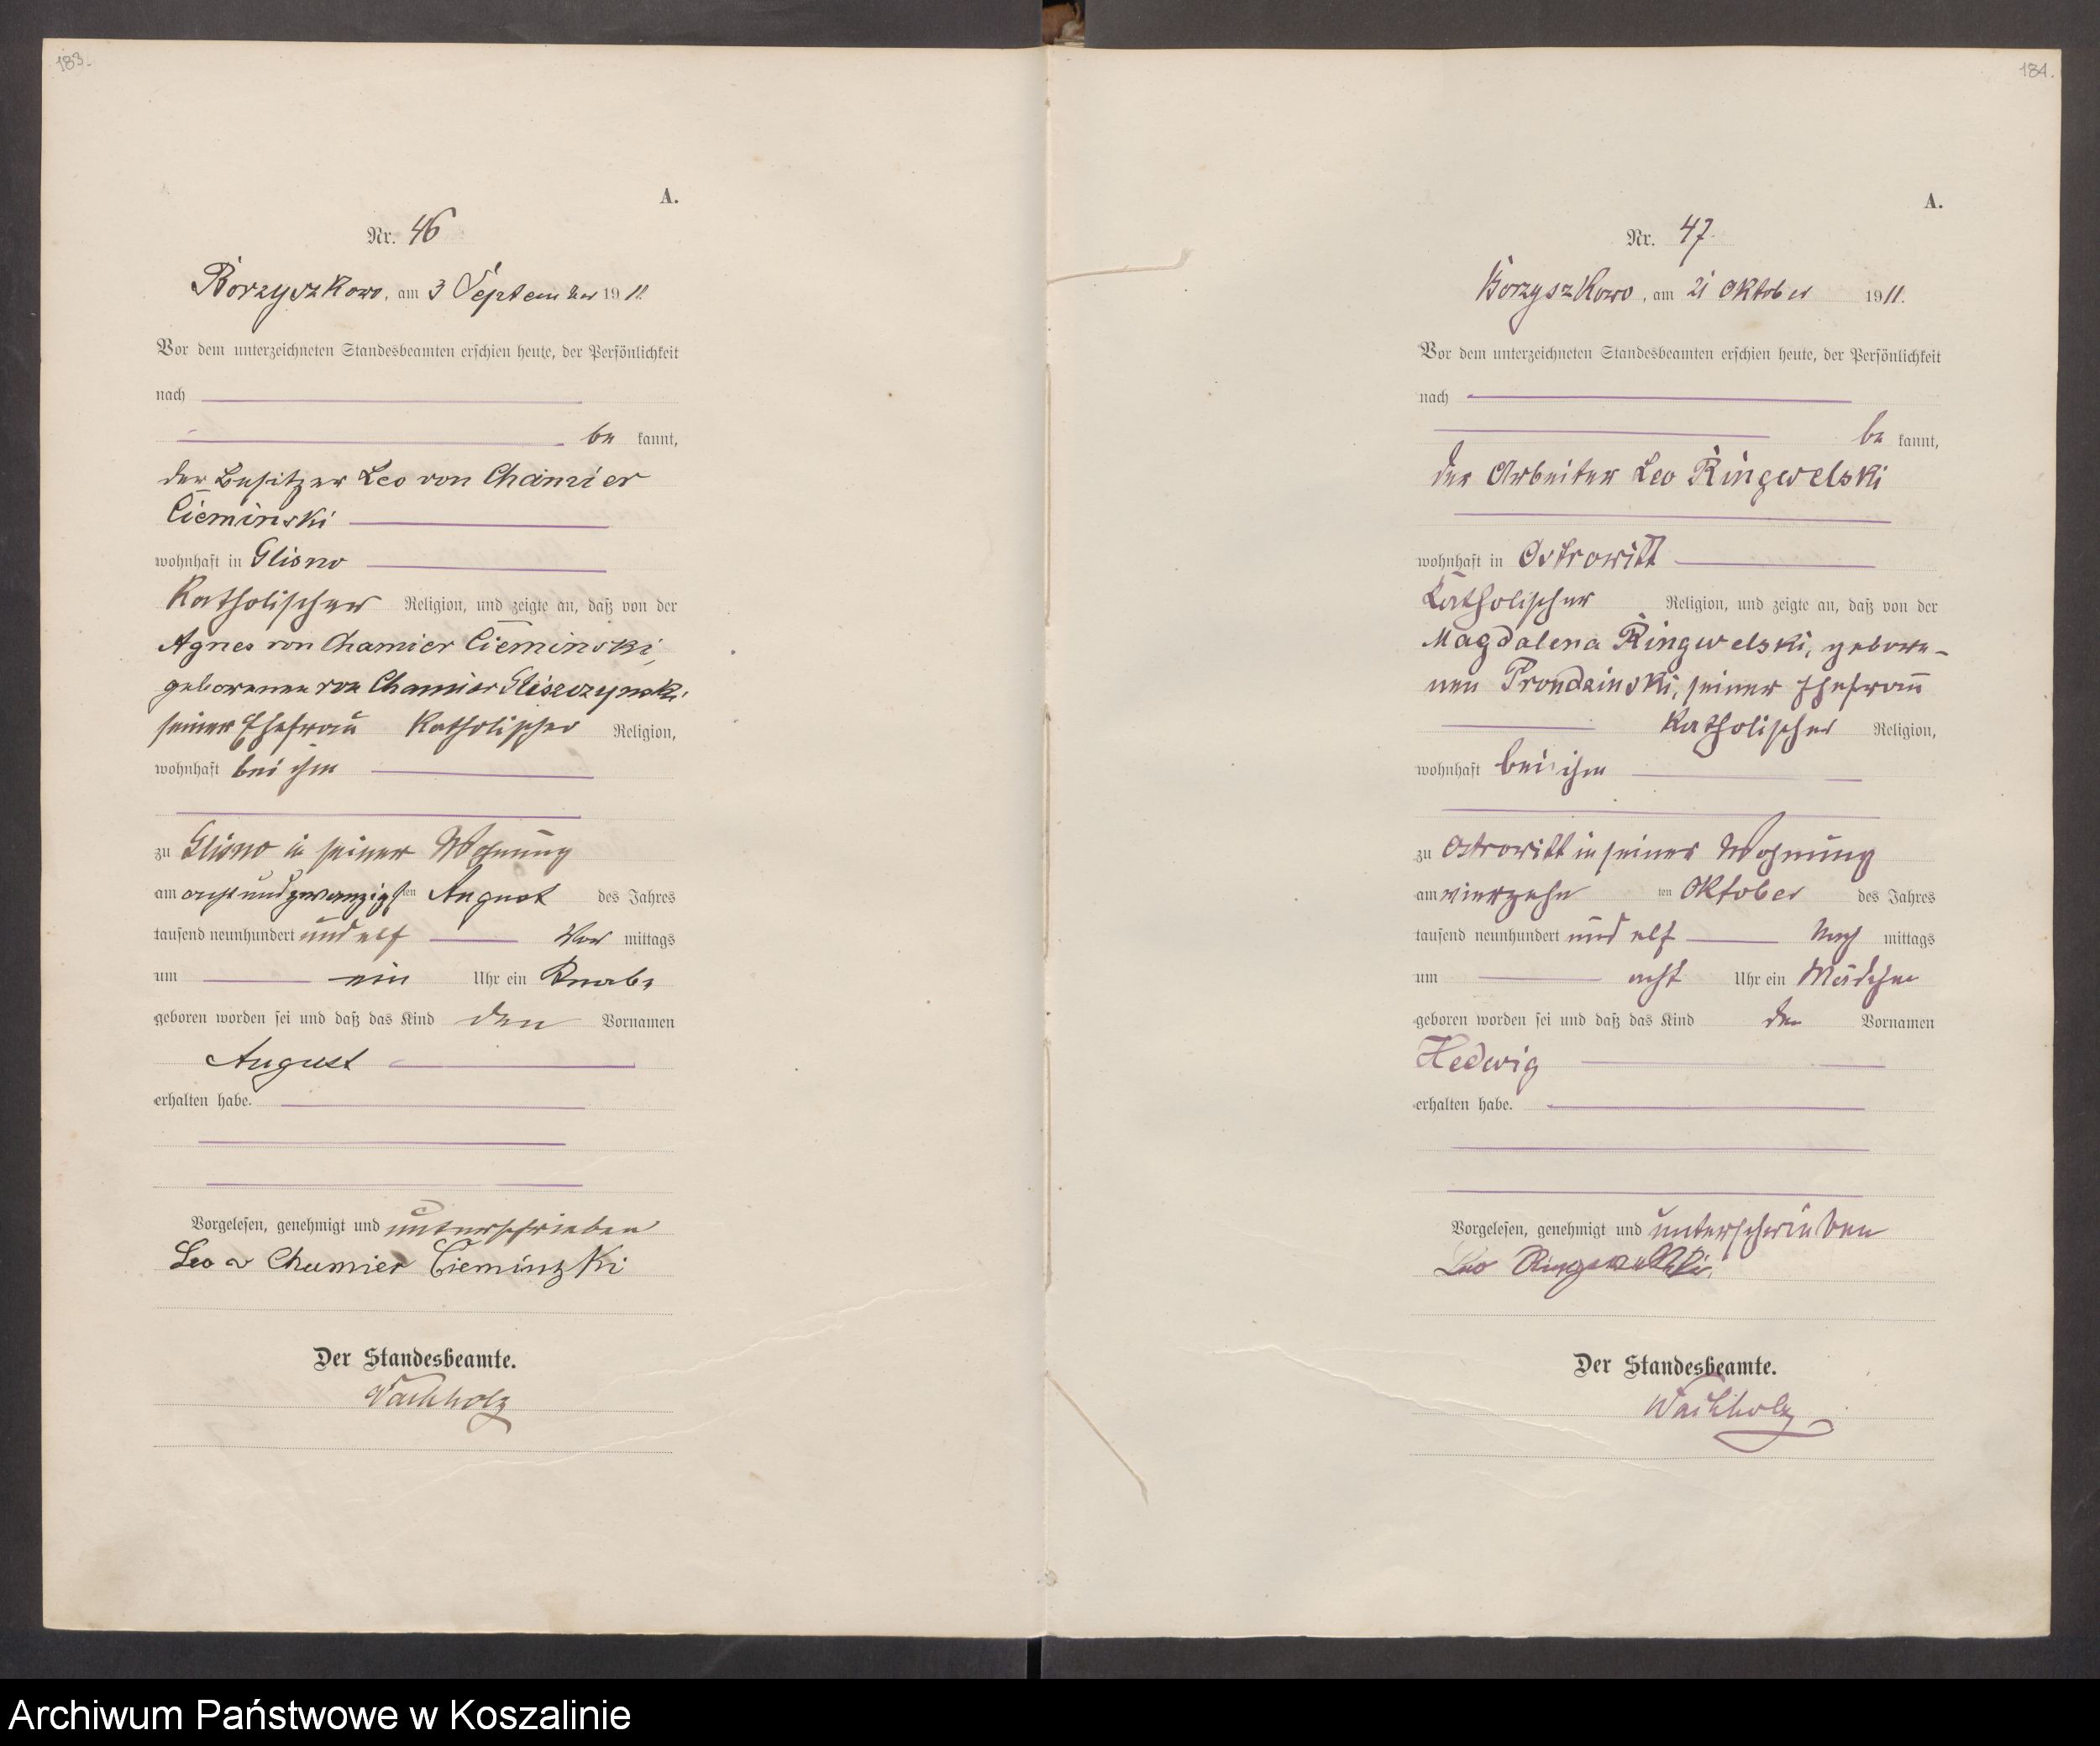 183.
A.
Nr. 46
Borzyszkowo, am 3 September 1911.
Vor dem unterzeichneten Standesbeamten erschien heute, der Persönlichkeit
nach
be kannt,
der Besitzer Leo von Chamier
Cieminski
wohnhaft in Glisno
Katholischer Religion, und zeigte an, daß von der
Agnes von Chamier Cieminski,
geborenen von Chamier Gliszczynski
seiner Ehefrau Katholischer Religion,
wohnhaft bei ihm
zu Glisno in seiner Wohnung
am acht und zwanzigsten August des Jahres
tausend neunhundert und elf Vor mittags
um ein Uhr ein Knabe
geboren worden sei und daß das Kind den Vornamen
August
erhalten habe.
Vorgelesen, genehmigt und unterschrieben
Leo v Chamier Cieminzki
Der Standesbeamte.
Wachholz
184.
A.
Nr. 47.
Borzyszkowo, am 21 Oktober 1911.
Vor dem unterzeichneten Standesbeamten erschien heute, der Persönlichkeit
nach
be kannt,
der Arbeiter Leo Ringwelski
wohnhaft in Ostrowitt
Katholischer Religion, und zeigte an, daß von der
Magdalena Ringwelski, gebore-
nen Prondzinski, seiner Ehefrau
Katholischer Religion,
wohnhaft bei ihm
zu Ostrowitt in seiner Wohnung
am vierzehn ten Oktober des Jahres
tausend neunhundert und elf Nach mittags
um acht Uhr ein Mädchen
geboren worden sei und daß das Kind den Vornamen
Hedwig
erhalten habe.
Vorgelesen, genehmigt und unterschrieben
Leo Ringwelski.
Der Standesbeamte.
Wachholz
Archiwum Państwowe w Koszalinie